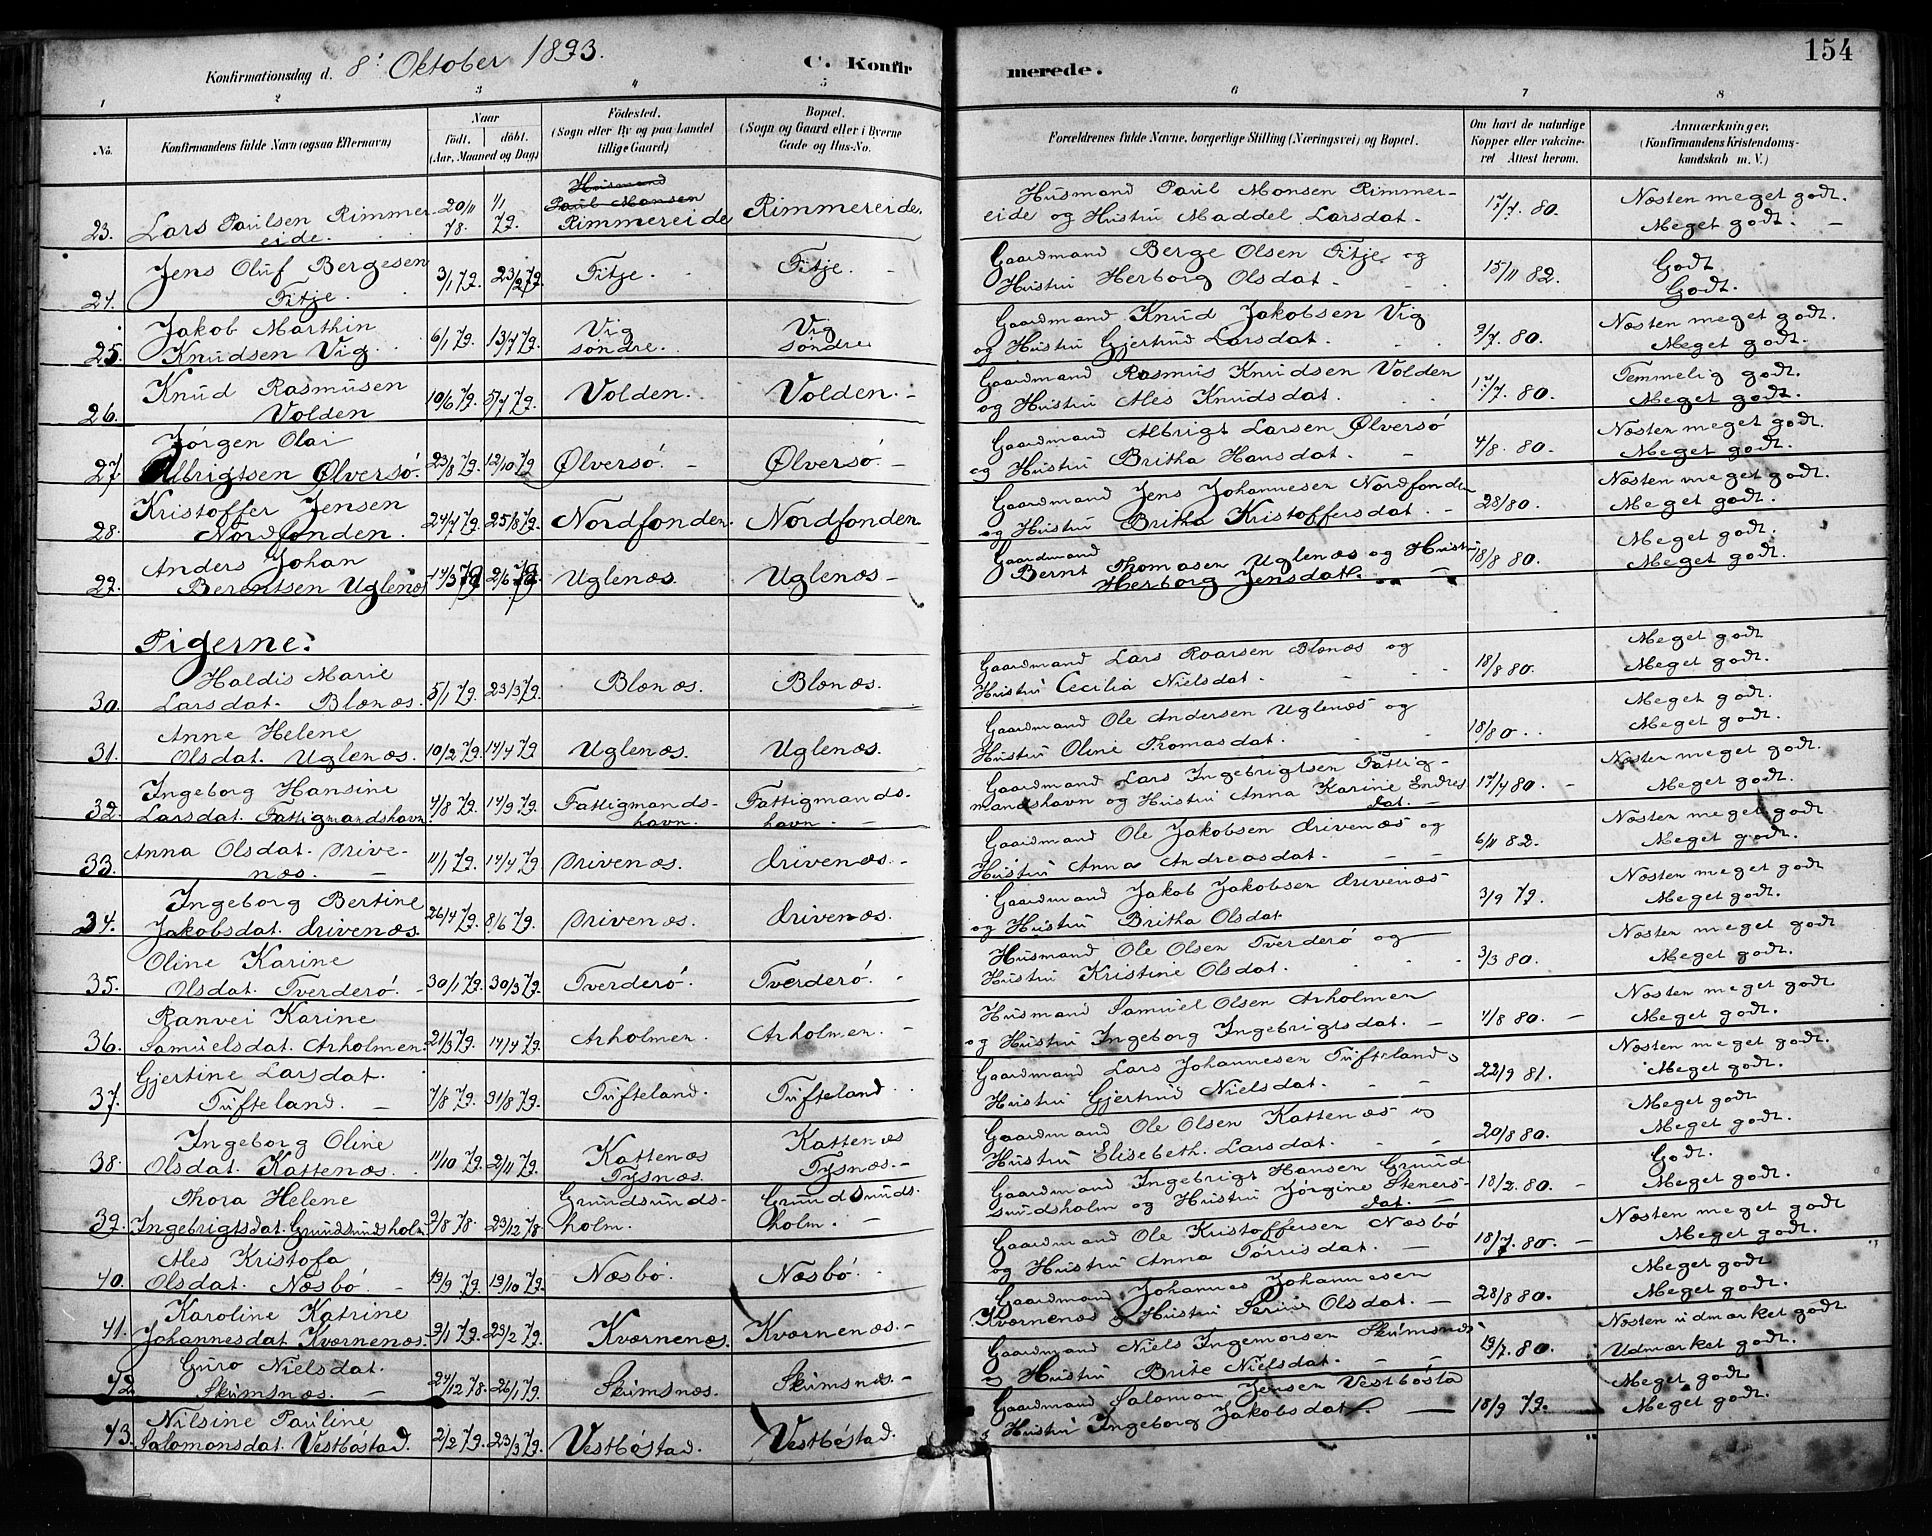 154
Konfirmationsdag d. 8' Oktober 1893.
C. Konfirmerede.
1 2 3 4 5 6 7 8
No. Konfirmandens fulde Navn (ogsaa Efternavn) Naar Födt. döbt. (Aar, Maaned og Dag) Födested. (Sogn eller By og paa Landet tillige Gaard) Bopæl. (Sogn og Gaard eller i Byerne Gade og Hus-No. Forældrenes fulde Navne, borgerlige Stilling (Næringsvei) og Bopæl. Om havt de naturlige Kopper eller vakcineret Attest herom. Anmærkninger, (Konfirmandens Kristendomskundskab m. V.)
23. Lars Paulsen Rimmereide. 20/11 78. 11/ 79. Husmand Paul Monsen Rimmereide Rimmereide. Husmand Paul Monsen Rimmereide og Hustru Maddel Larsdat. 17/7. 80. Næsten meget godt. Meget godt.
24. Jens Oluf Bergesen Fitje. 3/1 79. 23/2 79. Fitje. Fitje. Gaardmand Berge Olsen Fitje og Hustru Herborg Olsdat. 15/11 82. Godt Godt.
25. Jakob Marthin Knudsen Vig 6/1 79. 13/7 79. Vig søndre. Vig søndre Gaardmand Knud Jakobsen Vig og Hustru Gjertrud Larsdat. 9/7. 80. Næsten meget godt. Meget godt.
26. Knud Rasmusen Volden 10/6 79. 5/7 79. Volden. Volden. Gaardmand Rasmus Knudsen Volden og Hustru Ales Knudsdat. 17/7. 80. Temmelig godt. Meget godt.
27. Jørgen Olai Albrigtsen Ølversö. 23/8 79. 12/10 79 Ølversö. Ølversö. Gaardmand Albrigt Larsen Ølversö og Hustru Britha Hansdat. 4/8. 80. Næsten meget godt. Meget godt.
28. Kristoffer Jensen Nordfonden. 24/7 79. 25/8 79. Nordfonden. Nordfonden. Gaardmand Jens Johannesen Nordfonden og Hustru Britha Kristoffersdat. 28/80. Næsten meget godt. Meget godt.
29. Anders Johan Berentsen Uglenæs 14/3 79 2/6 79. Uglenæs. Uglenæs Gaardmand Bernt Thomasen Uglenæs og Hustru Herborg Jensdat. 18/8 80. Meget godt. Meget godt.
Pigerne:
30. Haldis Marie Larsdat. Blænæs. 5/1 79. 23/3 79. Blænæs. Blænæs. Gaardmand Lars Roarsen Blænæs og Hustru Cecilia Nielsdat. 18/8 80. Meget godt Meget godt.
31. Anne Helene Olsdat. Uglenæs. 10/2 79. 14/4 79 Uglenæs. Uglenæs. Gaardmand Ole Andersen Uglenæs og Hustru Oline Thomasdat. 18/80. Meget godt. Meget godt.
32. Ingeborg Hansine Larsdat. Fattigmandshavn. 4/8 79. 14/9 79. Fattigmandshavn. Fattigmandshavn. Gaardmand Lars Ingebrigtsen Fattigmandshavn og Hustru Anna Karine Endresdat. 17/4 80. Næsten meget godt. Meget godt.
33. Anna Olsdat. Drivenæs. 11/1 79. 14/4 79. Drivenæs. Drivenæs. Gaardmand Ole Jakobsen Drivenæs og Hustru Anna Andreasdat. 6/11 82. Næsten meget godt. Meget godt.
34. Ingeborg Bertine Jakobsdat. Drivenæs. 26/4 79. 8/6 79. Drivenæs. Drivenæs. Gaardmand Jakob Jakobsen Drivenæs og Hustru Britha Olsdat 3/9 79. Næsten meget godt Meget godt.
35. Oline Karine Olsdat. Tverderö. 30/1 79. 30/3 79. Tverderö. Tverderö. Husmand Ole Olsen Tverderö og Hustru Kristine Olsdat. 3/3 80. Næsten meget godt Meget godt.
36. Ranvei Karine Samuelsdat. Arholmen. 21/3 79. 14/4 79. Arholmen. Arholmen. Husmand Samuel Olsen Arholmen og Hustru Ingeborg Ingebrigtsdat. 4/8 80. Næsten meget godt Meget godt.
37. Gjertine Larsdat. Tufteland. 7/8 79. 31/8 79. Tufteland. Tufteland Gaardmand Lars Johannesen Tufteland og Hustru Gjertrud Nielsdat. 22/9 81. Næsten meget godt. Meget godt.
38. Ingeborg Oline Olsdat. Kattenæs. 11/10 79. 2/11 79. Kattenæs Tysnæs. Kattenæs Tysnæs. Gaardmand Ole Olsen Kattenæs og Hustru Elisebeth Larsdat. 20/8 80. Meget godt Meget godt.
39. Thora Helene Ingebrigtsdat. Grundsundsholm 3/8 78. 23/12 78. Grundsundsholm. Grundsundsholm. Gaardmand Ingebrigt Hansen Grundsundsholm og Hustru Jørgine Stenersdat. 18/2. 80. Godt. Meget godt.
40. Ales Kristofa Olsdat. Næsbö. 13/9 79. 19/10 79. Næsbö. Næsbö. Gaardmand Ole Kristoffersen Næsbö og Hustru Anna Törrisdat. 18/7. 80. Næsten meget godt Meget godt.
41. Karoline Katrine Johannesdat Kværnenæs. 9/1 79. 23/2 79. Kværnenæs. Kværnenæs. Gaardmand Johannes Johannesen Kværnenæs og Hustru Serine Olsdat. 28/8 80. Meget godt Meget godt.
42. Guro Nielsdat. Skumsnæs. 24/12 78. 26/1 79. Skumsnæs. Skumsnæs. Gaardmand Niels Ingemorsen Skumsnæs og Hustru Brite Nielsdat. 19/7. 80. Næsten udmærket godt Udmærket godt.
43. Nilsine Pauline Salomonsdat. Vestbøstad. 2/2 79. 23/3 79. Vestbøstad. Vestbøstad. Gaardmand Salomon Jensen Vestbøstad og Hustru Ingeborg Jakobsdat. 18/9 79. Meget godt Meget godt.